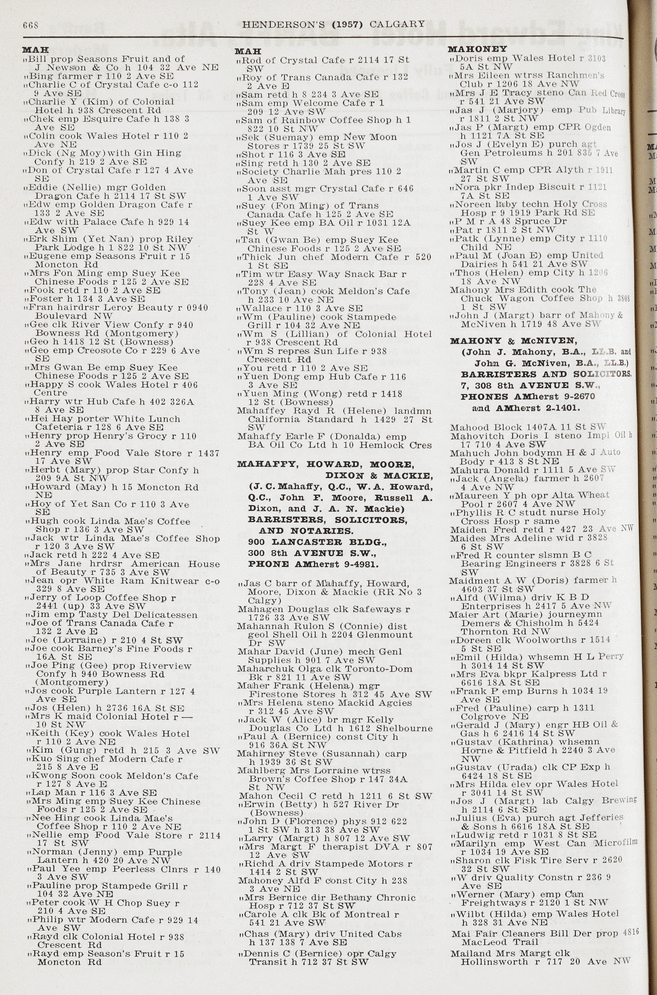 668
HENDERSON'S (1957) CALGARY
MAH
„Bill prop Seasons Fruit and of
J Newson & Co h 104 32 Ave NE
„Bing farmer r 110 2 Ave SE
„Charlie C of Crystal Cafe c-o 112
9 Ave SE
„Charlie Y (Kim) of Colonial
Hotel h 938 Crescent Rd
„Chek emp Esquire Cafe h 138 3
Ave SE
„Colin cook Wales Hotel r 110 2
Ave NE
„Dick (Ng Moy) with Gin Hing
Confy h 219 2 Ave SE
„Don of Crystal Cafe r 127 4 Ave
SE
„Eddie (Nellie) mgr Golden
Dragon Cafe h 2114 17 St SW
„Edw emp Golden Dragon Cafe r
133 2 Ave SE
„Edw with Palace Cafe h 929 14
Ave SW
„Erk Shim (Yet Nan) prop Riley
Park Lodge h 1 822 10 St NW
„Eugene emp Seasons Fruit r 15
Moncton Rd
„Mrs Fon Ming emp Suey Kee
Chinese Foods r 125 2 Ave SE
„Fook retd r 110 2 Ave SE
„Foster h 134 3 Ave SE
„Fran hairdrsr Leroy Beauty r 0940
Boulevard NW
„Gee clk River View Confy r 940
Bowness Rd (Montgomery)
„Geo h 1418 12 St (Bowness)
„Geo emp Creosote Co r 229 6 Ave
SE
„Mrs Gwan Be emp Suey Kee
Chinese Foods r 125 2 Ave SE
„Happy S cook Wales Hotel r 406
Centre
„Harry wtr Hub Cafe h 402 326A
8 Ave SE
„Hei Hay porter White Lunch
Cafeteria r 128 6 Ave SE
„Henry prop Henry's Grocy r 110
2 Ave SE
„Henry emp Food Vale Store r 1437
17 Ave SW
„Herbt (Mary) prop Star Confy h
209 9A St NW
„Howard (May) h 15 Moncton Rd
NE
„Hoy of Yet San Co r 110 3 Ave
SE
„Hugh cook Linda Mae's Coffee
Shop r 136 3 Ave SW
„Jack wtr Linda Mae's Coffee Shop
r 120 3 Ave SW
„Jack retd h 222 4 Ave SE
„Mrs Jane hrdrsr American House
of Beauty r 735 3 Ave SW
„Jean opr White Ram Knitwear c-o
329 8 Ave SE
„Jerry of Loop Coffee Shop r
2441 (up) 33 Ave SW
„Jim emp Tasty Del Delicatessen
„Joe of Trans Canada Cafe r
132 2 Ave E
„Joe (Lorraine) r 210 4 St SW
„Joe cook Barney's Fine Foods r
16A St SE
„Joe Ping (Gee) prop Riverview
Confy h 940 Bowness Rd
(Montgomery)
„Jos cook Purple Lantern r 127 4
Ave SE
„Jos (Helen) h 2736 16A St SE
„Mrs K maid Colonial Hotel r —
10 St NW
„Keith (Key) cook Wales Hotel
r 110 2 Ave NE
„Kim (Gung) retd h 215 3 Ave SW
„Kuo Sing chef Modern Cafe r
215 8 Ave E
„Kwong Soon cook Meldon's Cafe
r 127 8 Ave E
„Lap Man r 116 3 Ave SE
„Mrs Ming emp Suey Kee Chinese
Foods r 125 2 Ave SE
„Nee Hing cook Linda Mae's
Coffee Shop r 110 2 Ave NE
„Nellie emp Food Vale Store r 2114
17 St SW
„Norman (Jenny) emp Purple
Lantern h 420 20 Ave NW
„Paul Yee emp Peerless Clnrs r 140
3 Ave SW
„Pauline prop Stampede Grill r
104 32 Ave NE
„Peter cook W H Chop Suey r
210 4 Ave SE
„Philip wtr Modern Cafe r 929 14
Ave SW
„Rayd clk Colonial Hotel r 938
Crescent Rd
„Rayd emp Season's Fruit r 15
Moncton Rd
MAH
„Rod of Crystal Cafe r 2114 17 St
SW
„Roy of Trans Canada Cafe r 132
2 Ave E
„Sam retd h 8 234 3 Ave SE
„Sam emp Welcome Cafe r 1
209 12 Ave SW
„Sam of Rainbow Coffee Shop h 1
822 10 St NW
„Sek (Suemay) emp New Moon
Stores r 1739 25 St SW
„Shot r 116 3 Ave SE
„Sing retd h 130 2 Ave SE
„Society Charlie Mah pres 110 2
Ave SE
„Soon asst mgr Crystal Cafe r 646
1 Ave SW
„Suey (Fon Ming) of Trans
Canada Cafe h 125 2 Ave SE
„Suey Kee emp BA Oil r 1031 12A
St W
„Tan (Gwan Be) emp Suey Kee
Chinese Foods r 125 2 Ave SE
„Thick Jun chef Modern Cafe r 520
1 St SE
„Tim wtr Easy Way Snack Bar r
228 4 Ave SE
„Tony (Jean) cook Meldon's Cafe
h 233 10 Ave NE
„Wallace r 110 3 Ave SE
„Wm (Pauline) cook Stampede
Grill r 104 32 Ave NE
„Wm S (Lillian) of Colonial Hotel
r 938 Crescent Rd
„Wm S repres Sun Life r 938
Crescent Rd
„You retd r 110 2 Ave SE
„Yuen Dong emp Hub Cafe r 116
3 Ave SE
„Yuen Ming (Wong) retd r 1418
12 St (Bowness)
Mahaffey Rayd R (Helene) landmn
California Standard h 1429 27 St
SW
Mahaffy Earle F (Donalda) emp
BA Oil Co Ltd h 10 Hemlock Cres
MAHAFFY, HOWARD, MOORE,
DIXON & MACKIE,
(J. C. Mahaffy, Q.C., W. A. Howard,
Q.C., John F. Moore, Russell A.
Dixon, and J. A. N. Mackie)
BARRISTERS, SOLICITORS,
AND NOTARIES.
900 LANCASTER BLDG.,
300 8th AVENUE S.W.,
PHONE AMherst 9-4981.
„Jas C barr of Mahaffy, Howard,
Moore, Dixon & Mackie (RR No 3
Calgy)
Mahagen Douglas clk Safeways r
1726 33 Ave SW
Mahannah Rulon S (Connie) dist
geol Shell Oil h 2204 Glenmount
Dr SW
Mahar David (June) mech Genl
Supplies h 901 7 Ave SW
Maharchuk Olga clk Toronto-Dom
Bk r 821 11 Ave SW
Maher Frank (Helena) mgr
Firestone Stores h 312 45 Ave SW
„Mrs Helena steno Mackid Agcies
r 312 45 Ave SW
„Jack W (Alice) br mgr Kelly
Douglas Co Ltd h 1612 Shelbourne
„Paul A (Bernice) const City h
916 36A St NW
Mahirney Steve (Susannah) carp
h 1939 36 St SW
Mahlberg Mrs Lorraine wtrss
Brown's Coffee Shop r 147 34A
St NW
Mahon Cecil C retd h 1211 6 St SW
„Erwin (Betty) h 527 River Dr
(Bowness)
„John D (Florence) phys 912 622
1 St SW h 313 38 Ave SW
„Larry (Margt) h 807 12 Ave SW
„Mrs Margt F therapist DVA r 807
12 Ave SW
„Richd A driv Stampede Motors r
1414 2 St SW
Mahoney Alfd F const City h 238
3 Ave NE
„Mrs Bernice dir Bethany Chronic
Hosp r 712 37 St SW
„Carole A clk Bk of Montreal r
541 21 Ave SW
„Chas (Mary) driv United Cabs
h 137 138 7 Ave SE
„Dennis C (Bernice) opr Calgy
Transit h 712 37 St SW
MAHONEY
„Doris emp Wales Hotel r 3103
5A St NW
„Mrs Eileen wtrss Ranchmen's
Club r 1206 18 Ave NW
„Mrs J E Tracy steno Can Red Cross
r 541 21 Ave SW
„Jas J (Marjory) emp Pub Library
r 1811 2 St NW
„Jas P (Margt) emp CPR Ogden
h 1121 7A St SE
„Jos J (Evelyn E) purch agt
Gen Petroleums h 201 835 7 Ave
SW
„Martin C emp CPR Alyth r 1911
27 St SW
„Nora pkr Indep Biscuit r 1121
7A St SE
„Noreen laby techn Holy Cross
Hosp r 9 1919 Park Rd SE
„P M r A 48 Spruce Dr
„Pat r 1811 2 St NW
„Patk (Lynne) emp City r 1110
Child NE
„Paul M (Joan E) emp United
Dairies h 541 21 Ave SW
„Thos (Helen) emp City h 1206
18 Ave NW
Mahony Mrs Edith cook The
Chuck Wagon Coffee Shop h
1 St SW
„John J (Margt) barr of Mahony &
McNiven h 1719 48 Ave SW
MAHONY & McNIVEN,
(John J. Mahony, B.A., LL.B. and
John G. McNiven, B.A., LL.B.)
BARRISTERS AND SOLICITORS,
7, 308 8th AVENUE S.W.,
PHONES AMherst 9-2670
and AMherst 2-1401.
Mahood Block 1407A 11 St SW
Mahovitch Doris I steno Impl Oil h
17 710 4 Ave SW
Mahuch John bodymn H & J Auto
Body r 413 8 St NE
Mahura Donald r 1111 5 Ave SW
„Jack (Angela) farmer h 2607
4 Ave NW
„Maureen Y ph opr Alta Wheat
Pool r 2607 4 Ave NW
„Phyllis R C studt nurse Holy
Cross Hosp r same
Maiden Fred retd r 427 23 Ave NW
Maides Mrs Adeline wid r 3828
6 St SW
„Fred R counter slsmn B C
Bearing Engineers r 3828 6 St
SW
Maidment A W (Doris) farmer h
4603 37 St SW
„Alfd (Wilma) driv K B D
Enterprises h 2417 5 Ave NW
Maier Art (Marie) journeymn
Demers & Chisholm h 5424
Thornton Rd NW
„Doreen clk Woolworths r 1514
5 St SE
„Emil (Hilda) whsemn H L Perry
h 3014 14 St SW
„Mrs Eva bkpr Kalpress Ltd r
6616 18A St SE
„Frank P emp Burns h 1034 19
Ave SE
„Fred (Pauline) carp h 1311
Colgrove NE
„Gerald J (Mary) engr HB Oil &
Gas h 6 2416 14 St SW
„Gustav (Kathrina) whsemn
Horne & Pitfield h 2240 3 Ave
NW
„Gustav (Urada) clk CP Exp h
6424 18 St SE
„Mrs Hilda elev opr Wales Hotel
r 3041 14 St SW
„Jos J (Margt) lab Calgy Brewing
h 2114 6 St SE
„Julius (Eva) purch agt Jefferies
& Sons h 6616 18A St SE
„Ludwig retd r 1031 8 St SE
„Marilyn emp West Can Microfilm
r 1034 19 Ave SE
„Sharon clk Fisk Tire Serv r 2620
32 St SW
„W driv Quality Constn r 236 9
Ave SE
„Werner (Mary) emp Can
Freightways r 2120 1 St NW
„Wilbt (Hilda) emp Wales Hotel
h 328 31 Ave NE
Mai Fair Cleaners Bill Der prop 4816
MacLeod Trail
Mailand Mrs Margt clk
Hollinsworth r 717 20 Ave NW